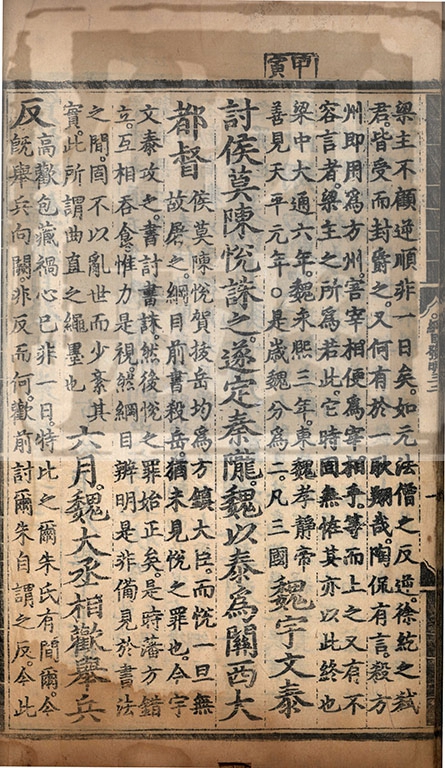 甲寅
梁主不顧逆順非一日矣。如元法僧之反逆。徐紇之弒
君。皆受而封爵之。又何有於一耿翔哉。陶侃有言。殺方
州即用爲方州。害宰相便爲宰相乎。等而上之又有不
容言者。梁主之所爲若此。它時固無恠其亦以此終也
梁中大通六年。魏永熙三年。東魏孝靜帝
善見天平元年。○是歲魏分爲二。凡三國
魏宇文泰
討侯莫陳悅誅之。遂定秦隴。魏以泰爲關西大
都督
侯莫陳悅賀拔岳均爲方鎮大臣。而悅一旦無
故屠之。綱目前書殺岳。猶未見悅之罪也。今宇
文泰攻之。書討書誅。然後悅之罪始正矣。是時藩方錯
立。互相吞食。惟力是視。然綱目辨明是非備見於書法
之間。固不以亂世而少紊其
實。此所謂曲直之繩墨也
六月。魏大丞相歡舉兵
反
高歡包藏禍心已非一日。特此之爾朱氏有間爾。今
旣舉兵向闕。非反而何。歡前討爾朱自謂之反。今此